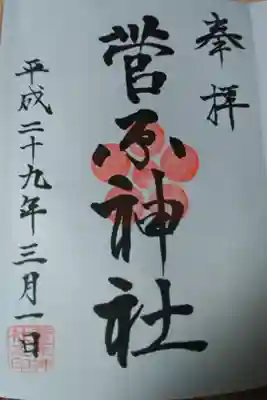 奉拝
菅原神社
平成二十九年三月一日